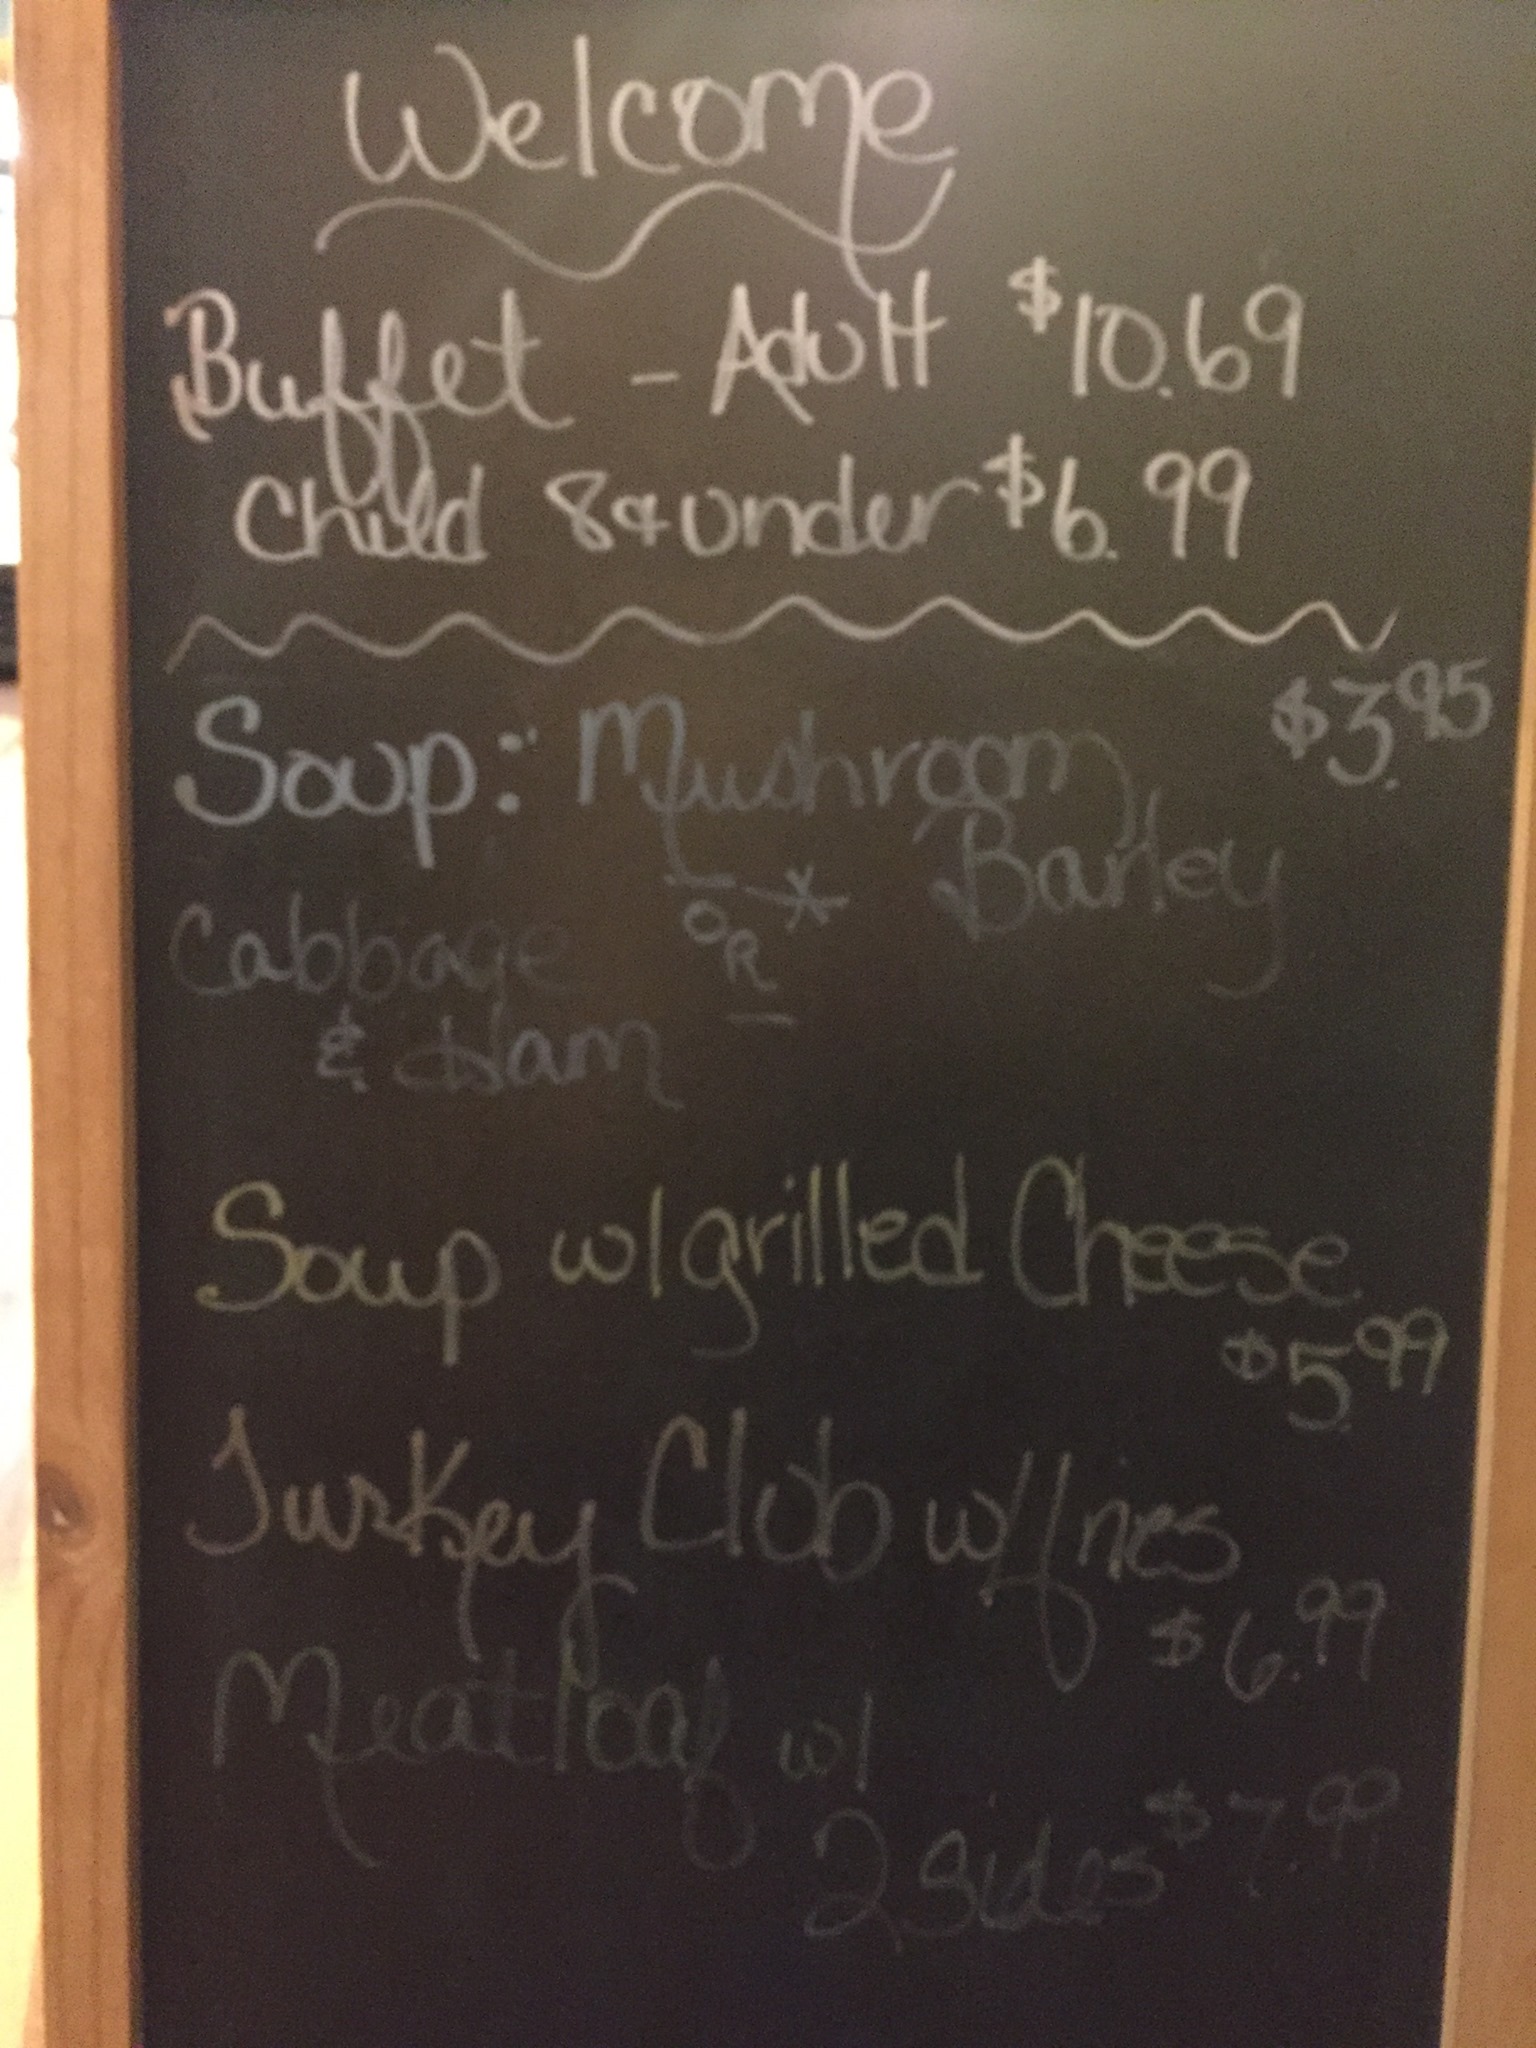 Welcome
Buffet - Adult $10.69
Child 8 & under $6.99
Soup: Mushroom $3.95
Barley
OR *
Cabbage
& Ham
Soup w/ grilled Cheese
$5.99
Turkey Club w/ fries
$6.99
Meatloaf w/
2 Sides $7.99